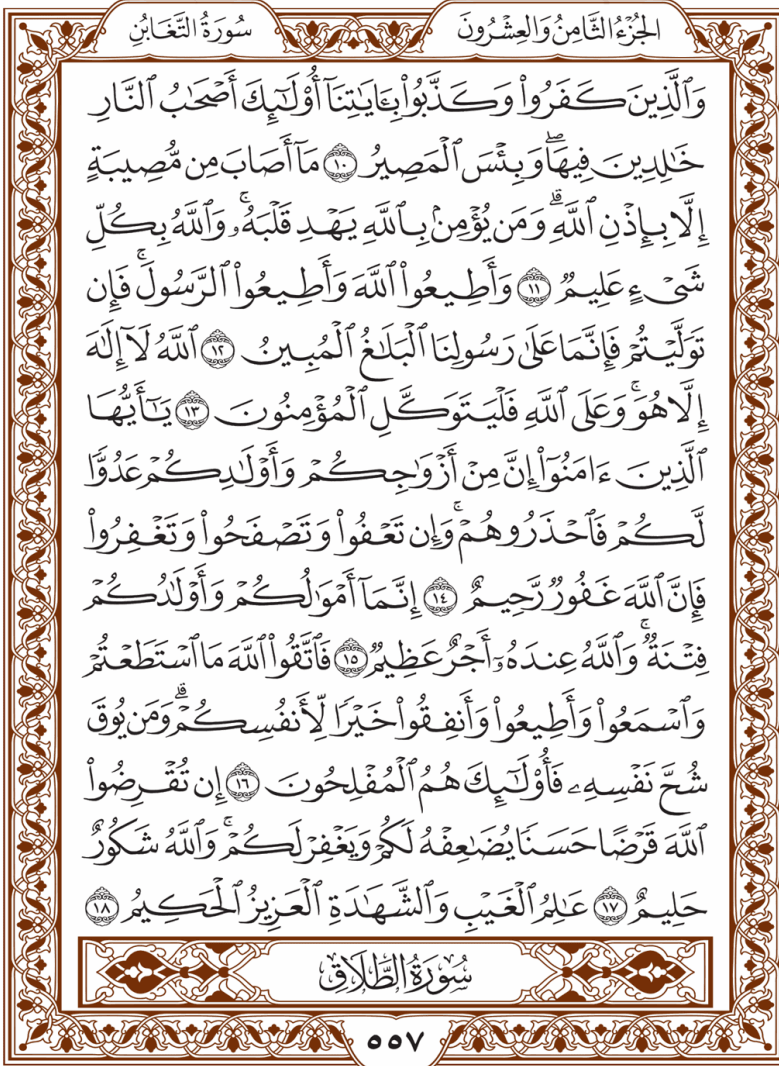 الجُزْءُ الثَّامِنُ وَالعِشْرُونَ
سُورَةُ التَّغَابُنِ
وَٱلَّذِينَ كَفَرُوا۟ وَكَذَّبُوا۟ بِـَٔايَـٰتِنَآ أُو۟لَـٰٓئِكَ أَصْحَـٰبُ ٱلنَّارِ
خَـٰلِدِينَ فِيهَاۖ وَبِئْسَ ٱلْمَصِيرُ ١٠ مَآ أَصَابَ مِن مُّصِيبَةٍ
إِلَّا بِإِذْنِ ٱللَّهِۗ وَمَن يُؤْمِنۢ بِٱللَّهِ يَهْدِ قَلْبَهُۥۚ وَٱللَّهُ بِكُلِّ
شَىْءٍ عَلِيمٌ ١١ وَأَطِيعُوا۟ ٱللَّهَ وَأَطِيعُوا۟ ٱلرَّسُولَۚ فَإِن
تَوَلَّيْتُمْ فَإِنَّمَا عَلَىٰ رَسُولِنَا ٱلْبَلَـٰغُ ٱلْمُبِينُ ١٢ ٱللَّهُ لَآ إِلَـٰهَ
إِلَّا هُوَۚ وَعَلَى ٱللَّهِ فَلْيَتَوَكَّلِ ٱلْمُؤْمِنُونَ ١٣ يَـٰٓأَيُّهَا
ٱلَّذِينَ ءَامَنُوٓا۟ إِنَّ مِنْ أَزْوَٰجِكُمْ وَأَوْلَـٰدِكُمْ عَدُوًّا
لَّكُمْ فَٱحْذَرُوهُمْۚ وَإِن تَعْفُوا۟ وَتَصْفَحُوا۟ وَتَغْفِرُوا۟
فَإِنَّ ٱللَّهَ غَفُورٌ رَّحِيمٌ ١٤ إِنَّمَآ أَمْوَٰلُكُمْ وَأَوْلَـٰدُكُمْ
فِتْنَةٌۚ وَٱللَّهُ عِندَهُۥٓ أَجْرٌ عَظِيمٌ ١٥ فَٱتَّقُوا۟ ٱللَّهَ مَا ٱسْتَطَعْتُمْ
وَٱسْمَعُوا۟ وَأَطِيعُوا۟ وَأَنفِقُوا۟ خَيْرًا لِّأَنفُسِكُمْۗ وَمَن يُوقَ
شُحَّ نَفْسِهِۦ فَأُو۟لَـٰٓئِكَ هُمُ ٱلْمُفْلِحُونَ ١٦ إِن تُقْرِضُوا۟
ٱللَّهَ قَرْضًا حَسَنًا يُضَـٰعِفْهُ لَكُمْ وَيَغْفِرْ لَكُمْۚ وَٱللَّهُ شَكُورٌ
حَلِيمٌ ١٧ عَـٰلِمُ ٱلْغَيْبِ وَٱلشَّهَـٰدَةِ ٱلْعَزِيزُ ٱلْحَكِيمُ ١٨
سُورَةُ الطَّلَاقِ
٥٥٧